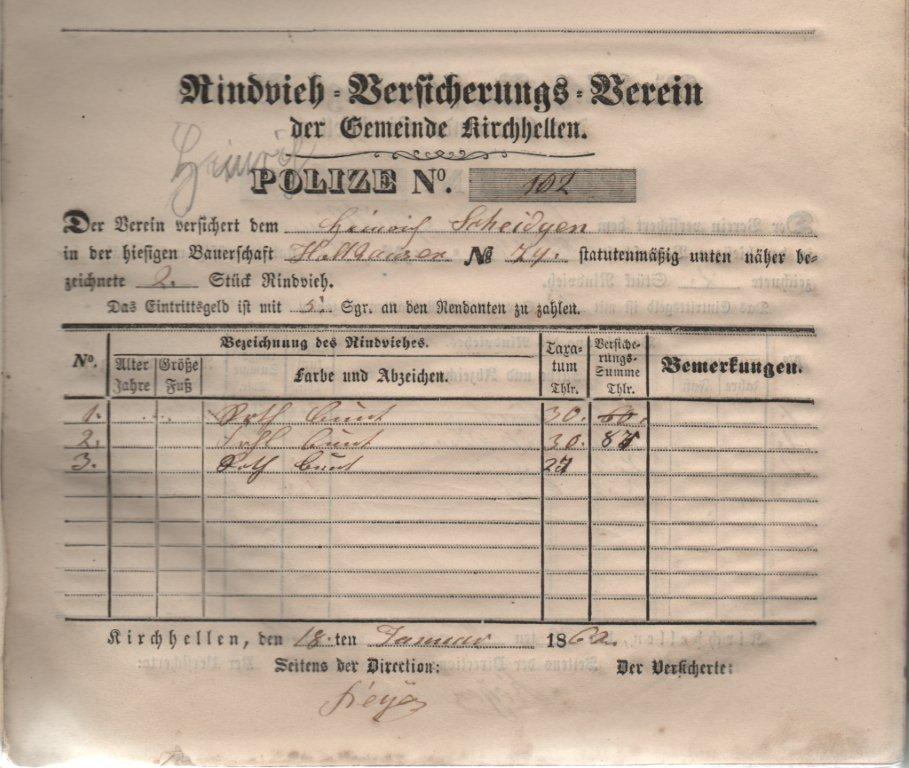 Rindvieh-Versicherungs-Verein
der Gemeinde Kirchhellen.
Heinrich
POLIZE No. 102
Der Verein versichert dem Heinrich Scheidgen
in der hiesigen Bauerschaft No 74. statutenmäßig unten näher be-
zeichnete 2. Stück Rindvieh.
Das Eintrittsgeld ist mit 5. Sgr. an den Rendanten zu zahlen.
No. Bezeichnung des Rindviehes. Taxa-tum Thlr. Versiche-rungs-Summe Thlr. Bemerkungen.
Alter Jahre Größe Fuß Farbe und Abzeichen.
1. Roth bunt 30. 60.
2. bunt 30. 87
3. Roth bunt 27
Kirchhellen, den 18.ten Januar 1862.
Seitens der Direction: Der Versicherte: